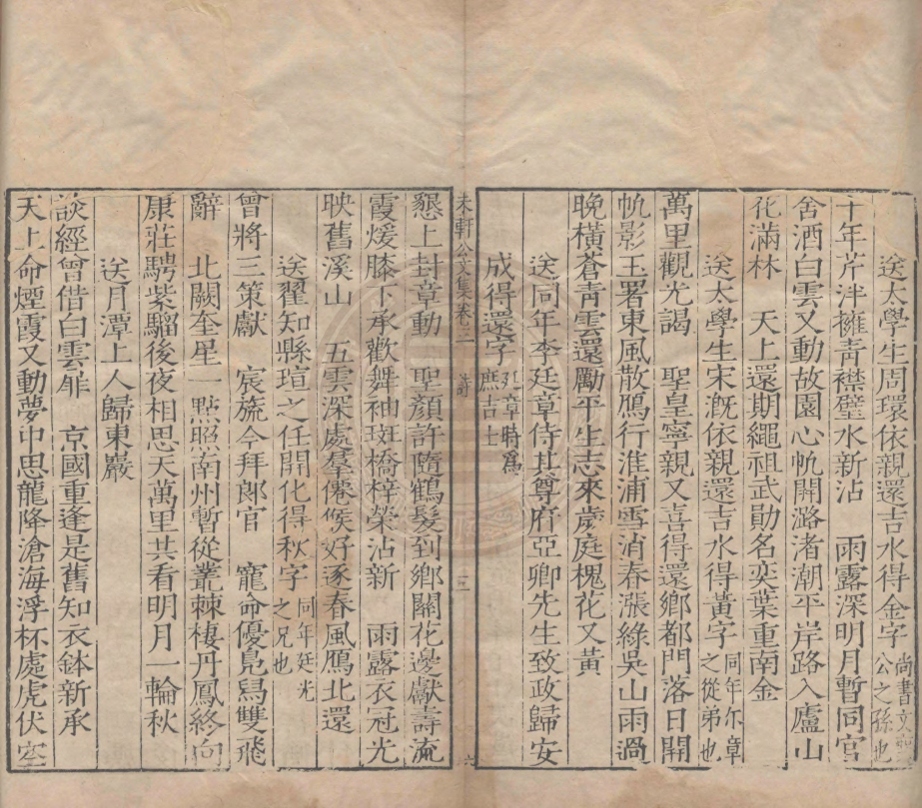 送太學生周環依親還吉水得金字尚書文
公之孫也
十年芹泮擁青襟璧水新沾　雨露深明月暫同官
舍酒白雲又動故園心帆開潞渚潮平岸路入廬山
花滿林　天上還期繩祖武勛名奕葉重南金
送太學生宋溉依親還吉水得黃字同年尔章
之從弟也
萬里觀光謁　聖皇寧親又喜得還鄉都門落日開
帆影玉署東風散鴈行淮浦雪消春漲綠吳山雨過
晚橫蒼青雲還勵平生志來歲庭槐花又黃
送同年李廷章侍其尊府亞卿先生致政歸安
成得還字孔章時爲
庶吉士
未軒公文集卷之二　詩　六
懇上封章動　聖顏許隨鶴髮到鄉關花邊獻壽流
霞煖膝下承歡舞袖斑橋梓榮沾新　雨露衣冠光
映舊溪山　五雲深處羣僊候好逐春風鴈北還
送翟知縣瑄之任開化得秋字同年廷光
之兄也
曾將三策獻　宸旒今拜郎官　寵命優鳬舄雙飛
辭　北闕奎星一點照南州暫從叢棘棲丹鳳終向
康莊騁紫騮後夜相思天萬里共看明月一輪秋
送月潭上人歸東巖
談經曾借白雲扉　京國重逢是舊知衣鉢新承
天上命煙霞又動夢中思龍降滄海浮杯處虎伏空